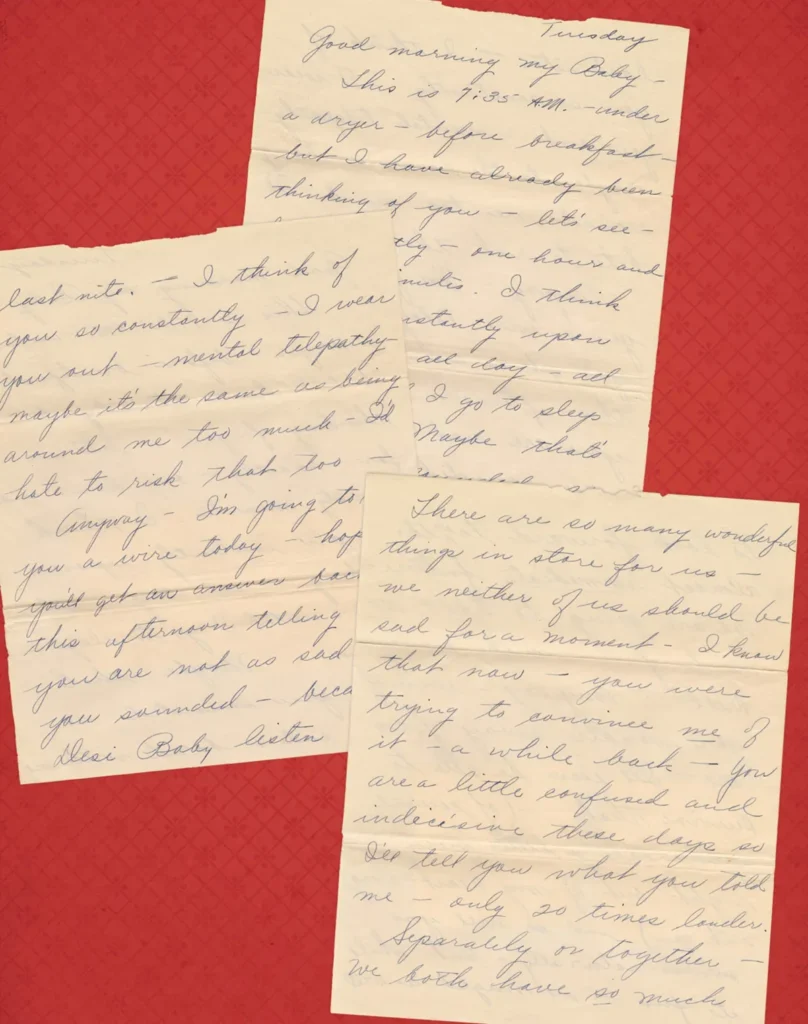 Tuesday
Good morning my Baby –
This is 7:35 A.M. – under
a dryer – before breakfast –
but I have already been
thinking of you – let's see –
tly – one hour and
nutes. I think
nstantly upon
all day – all
I go to sleep
Maybe that's
last nite. – I think of
you so constantly – I wear
you out – mental telepathy
maybe it's the same as being
around me too much – I'd
hate to risk that too –
Anyway – I'm going to
you a wire today – hop
you'll get an answer bac
this afternoon telling
you are not as sad
you sounded – beca
Desi Baby listen
There are so many wonderful
things in store for us –
we neither of us should be
sad for a moment – I know
that now – you were
trying to convince me of
it – a while back – you
are a little confused and
indecisive these days so
I'll tell you what you told
me – only 20 times louder.
Separately or together –
we both have so much